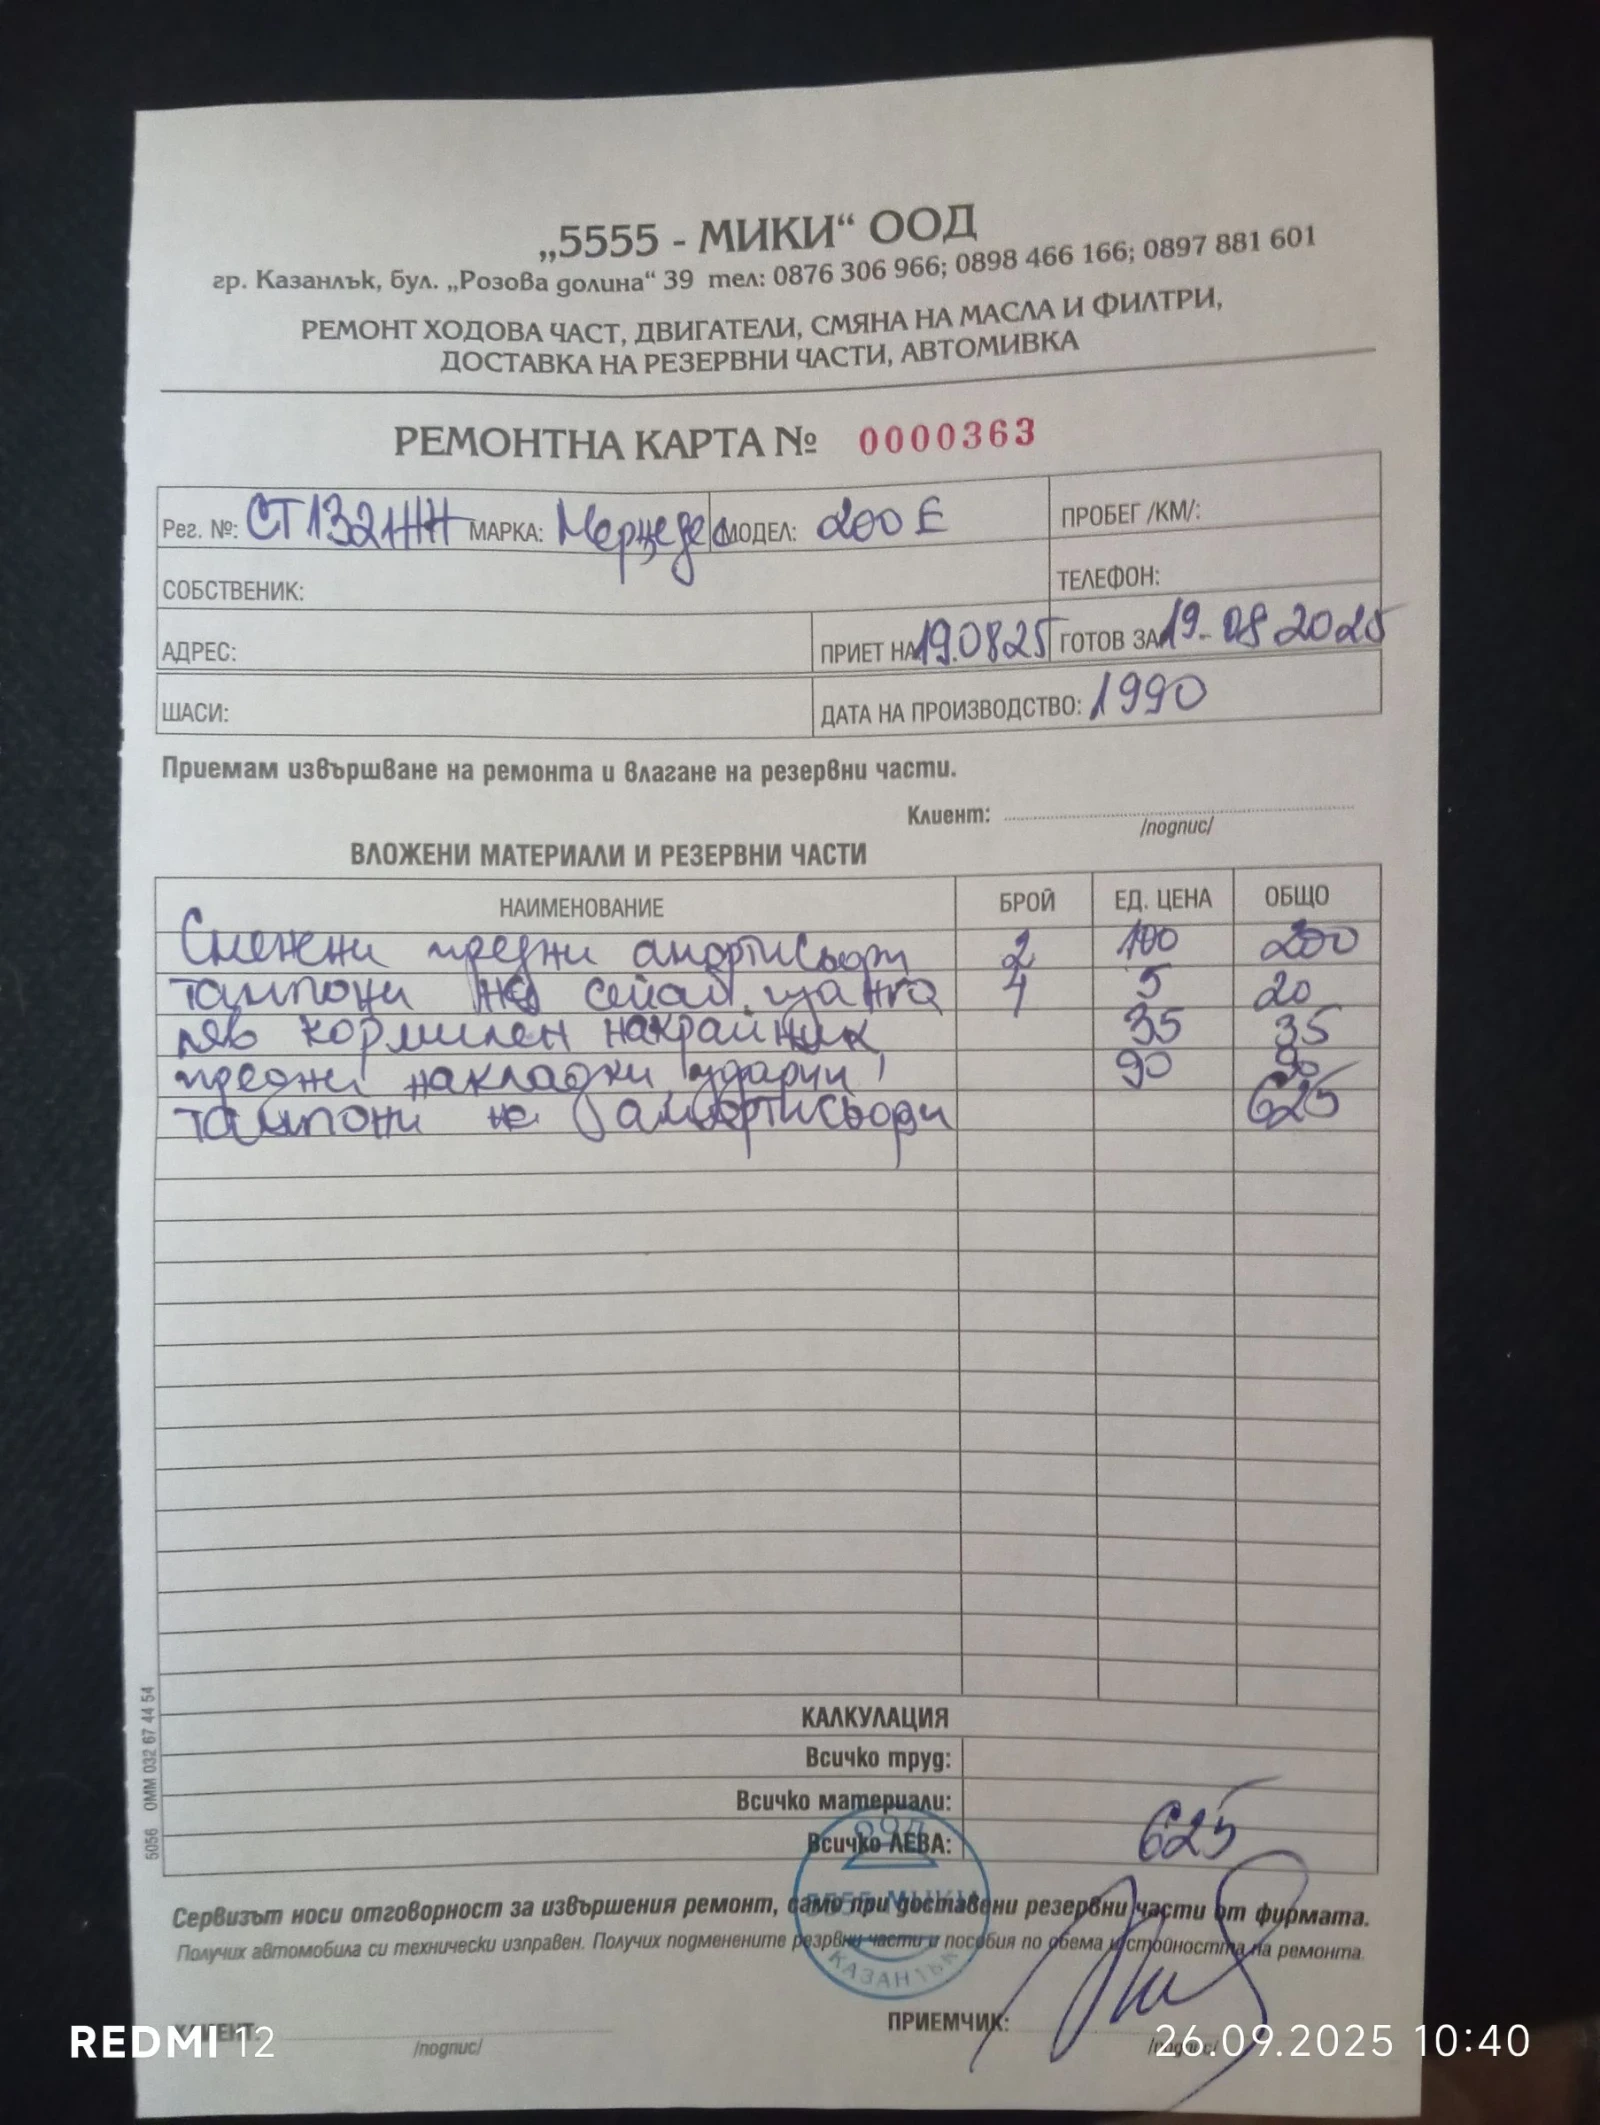 „5555 - МИКИ“ ООД
гр. Казанлък, бул. „Розова долина“ 39 тел: 0876 306 966; 0898 466 166; 0897 881 601
РЕМОНТ ХОДОВА ЧАСТ, ДВИГАТЕЛИ, СМЯНА НА МАСЛА И ФИЛТРИ,
ДОСТАВКА НА РЕЗЕРВНИ ЧАСТИ, АВТОМИВКА
РЕМОНТНА КАРТА № 0000363
Рег. №: СТ1321НН МАРКА: Мерцедес МОДЕЛ: 200 Е ПРОБЕГ /КМ/:
СОБСТВЕНИК: ТЕЛЕФОН:
АДРЕС: ПРИЕТ НА 19.0825 ГОТОВ ЗА 19-08 2025
ШАСИ: ДАТА НА ПРОИЗВОДСТВО: 1990
Приемам извършване на ремонта и влагане на резервни части.
Клиент:
/подпис/
ВЛОЖЕНИ МАТЕРИАЛИ И РЕЗЕРВНИ ЧАСТИ
НАИМЕНОВАНИЕ БРОЙ ЕД. ЦЕНА ОБЩО
Сменени предни 2 100 200
тампони на щанга 4 5 20
ляв кормилен накрайник 35 35
предни накладки 90 90
тампони на амортисьори 625
КАЛКУЛАЦИЯ
Всичко труд:
Всичко материали:
Всичко ЛЕВА: 625
Сервизът носи отговорност за извършения ремонт, само при доставени резервни части от фирмата.
Получих автомобила си технически изправен. Получих подменените резрвни части и пособия по обема и стойността на ремонта.
ООД
5555-МИКИ
КАЗАНЛЪК
КЛИЕНТ: ПРИЕМЧИК:
/подпис/ /подпис/
5056 ОММ 032 67 44 54
REDMI 12 26.09.2025 10:40